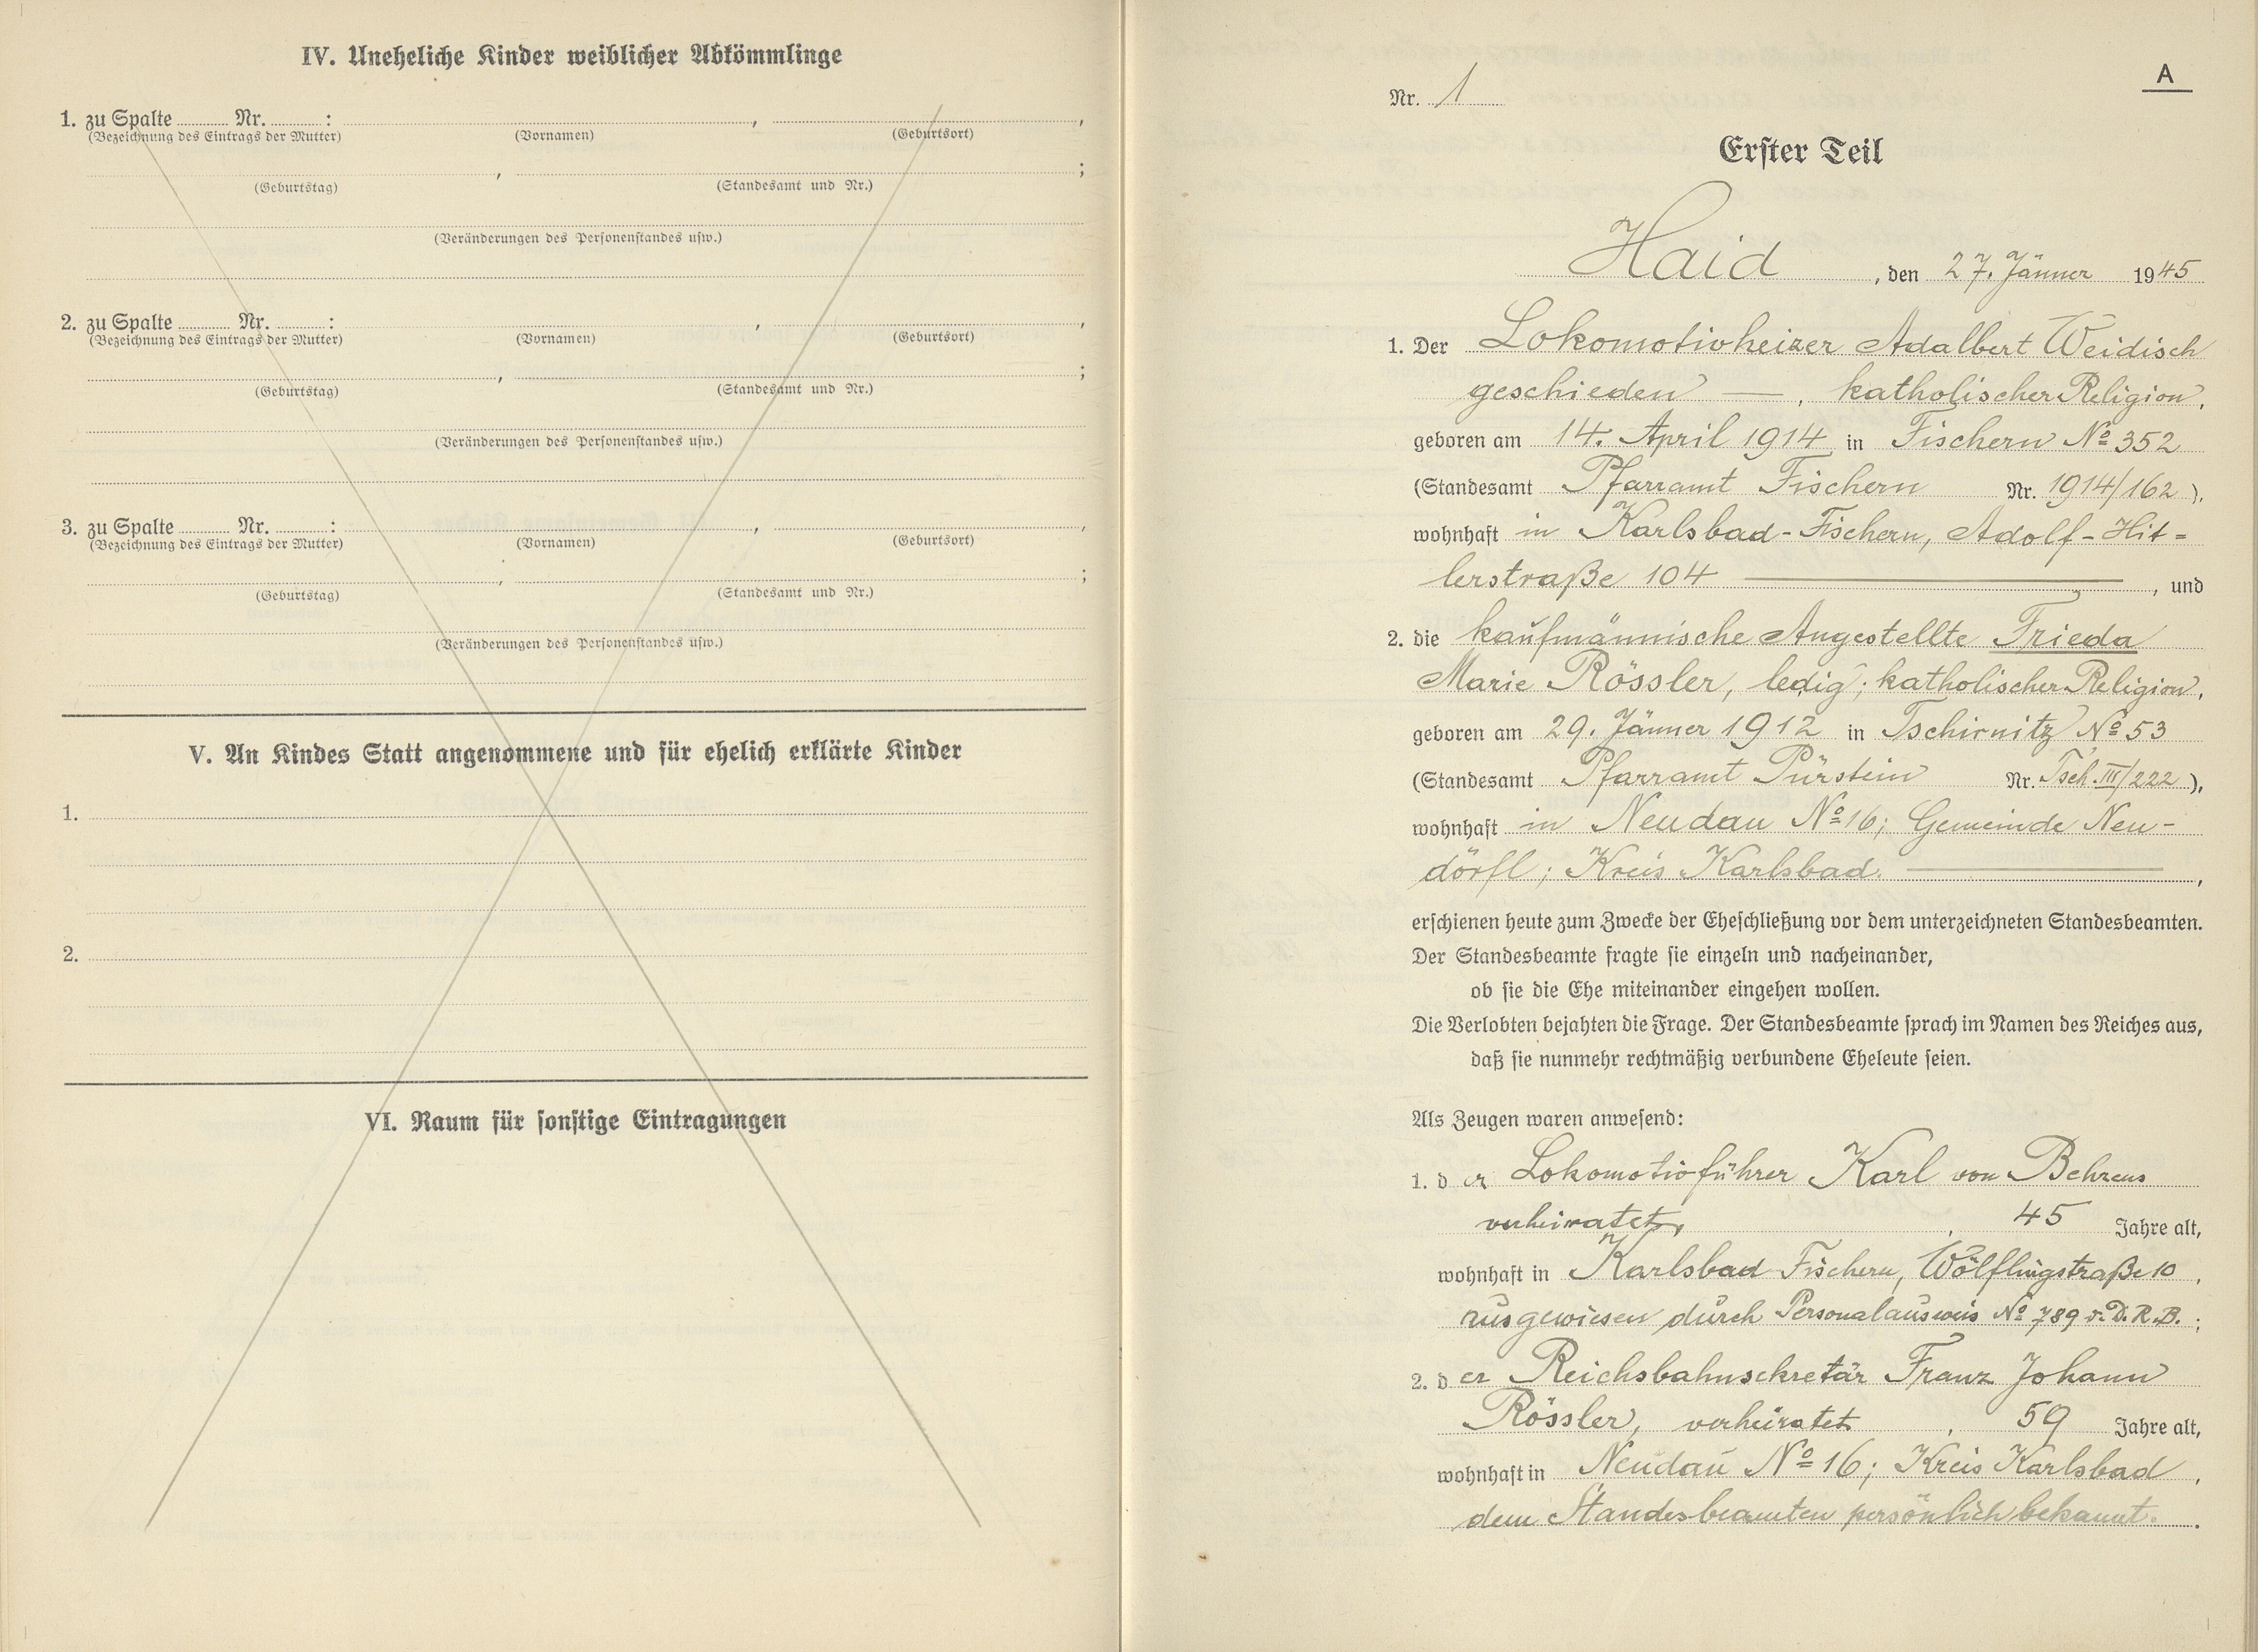 IV. Uneheliche Kinder weiblicher Abkömmlinge
1. zu Spalte ........ Nr. ........ : ........ , ........ ,
(Bezeichnung des Eintrags der Mutter) (Vornamen) (Geburtsort)
........ , ........ ;
(Geburtstag) (Standesamt und Nr.)
(Veränderungen des Personenstandes usw.)
2. zu Spalte ........ Nr. ........ : ........ , ........ ,
(Bezeichnung des Eintrags der Mutter) (Vornamen) (Geburtsort)
........ , ........ ;
(Geburtstag) (Standesamt und Nr.)
(Veränderungen des Personenstandes usw.)
3. zu Spalte ........ Nr. ........ : ........ , ........ ,
(Bezeichnung des Eintrags der Mutter) (Vornamen) (Geburtsort)
........ , ........ ;
(Geburtstag) (Standesamt und Nr.)
(Veränderungen des Personenstandes usw.)
V. An Kindes Statt angenommene und für ehelich erklärte Kinder
1.
2.
VI. Raum für sonstige Eintragungen
A
Nr. 1
Erster Teil
Haid, den 27. Jänner 1945
1. Der Lokomotivheizer Adalbert Weidisch
geschieden —, katholischer Religion,
geboren am 14. April 1914 in Fischern № 352
(Standesamt Pfarramt Fischern Nr. 1914/162),
wohnhaft in Karlsbad-Fischern, Adolf-Hit=
lerstraße 104 ———, und
2. die kaufmännische Angestellte Frieda
Marie Rössler, ledig; katholischer Religion,
geboren am 29. Jänner 1912 in Tschirnitz № 53
(Standesamt Pfarramt Pürstein Nr. Tsch. III/222),
wohnhaft in Neudau № 16; Gemeinde Neu-
dörfl; Kreis Karlsbad. ———,
erschienen heute zum Zwecke der Eheschließung vor dem unterzeichneten Standesbeamten.
Der Standesbeamte fragte sie einzeln und nacheinander,
ob sie die Ehe miteinander eingehen wollen.
Die Verlobten bejahten die Frage. Der Standesbeamte sprach im Namen des Reiches aus,
daß sie nunmehr rechtmäßig verbundene Eheleute seien.
Als Zeugen waren anwesend:
1. der Lokomotivführer Karl von Behrens
verheiratet, 45 Jahre alt,
wohnhaft in Karlsbad-Fischern, Wölflingstraße 10,
ausgewiesen durch Personalausweis № 789 v. D.R.B.;
2. der Reichsbahnsekretär Franz Johann
Rössler, verheiratet, 59 Jahre alt,
wohnhaft in Neudau № 16; Kreis Karlsbad,
dem Standesbeamten persönlich bekannt.